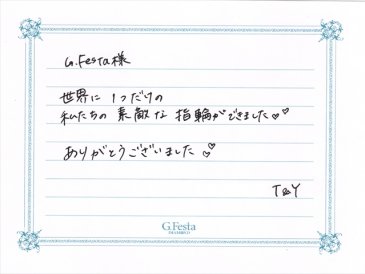 G.Festa様
世界に1つだけの
私たちの素敵な指輪ができました♡♡
ありがとうございました♡
T&Y
G.Festa
DIAMOND